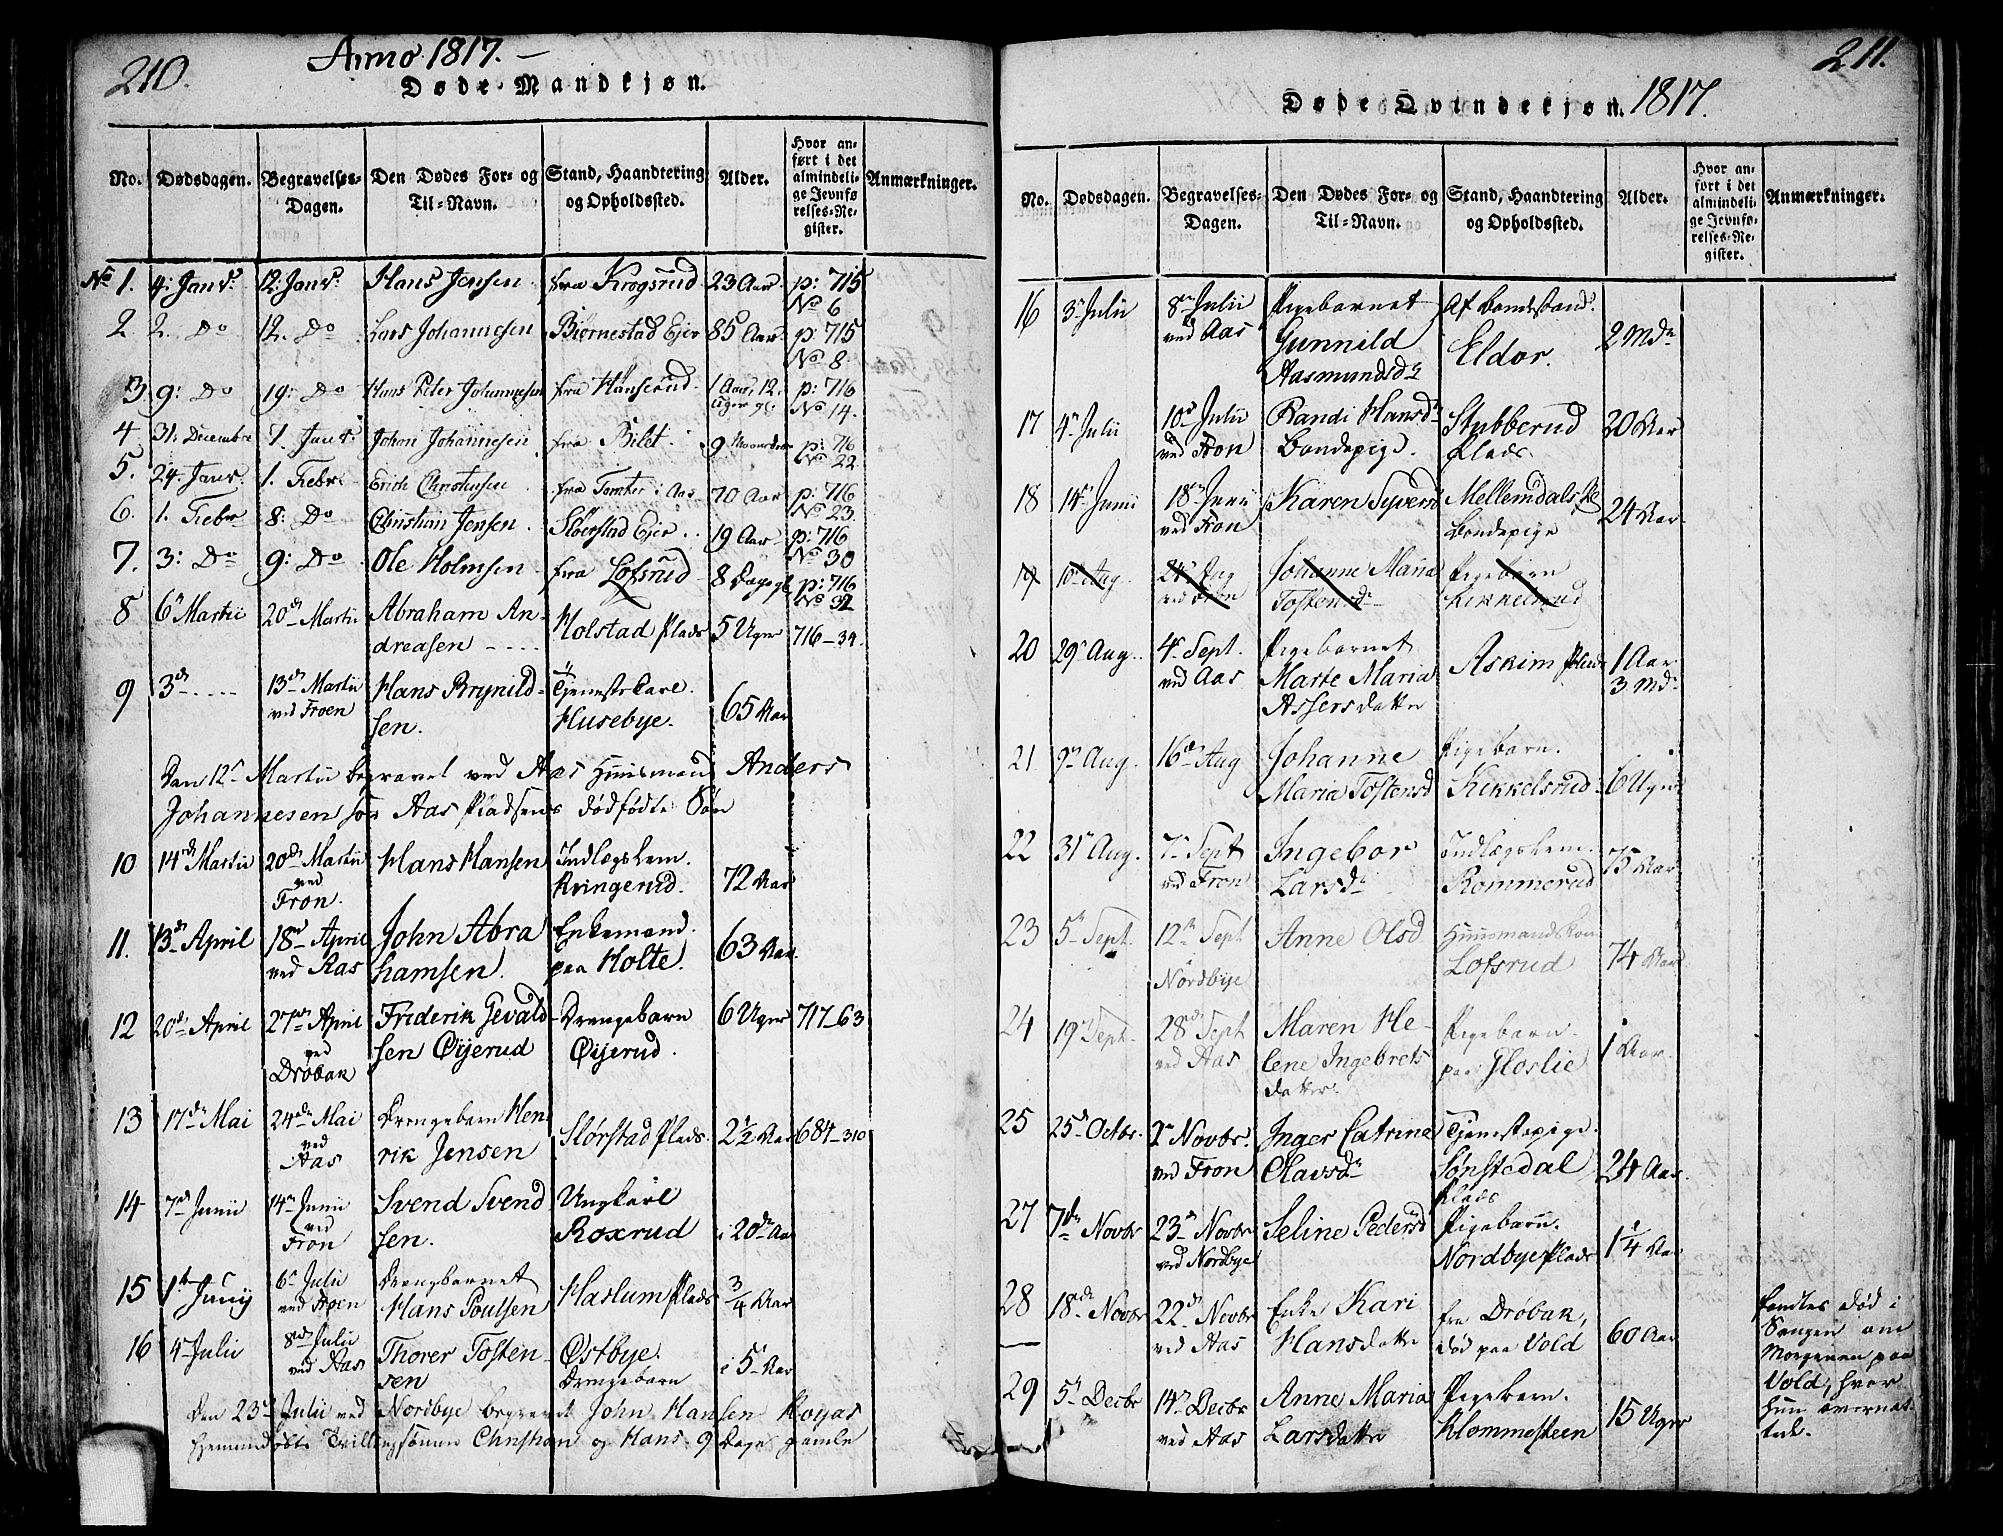 210.
Anno 1817.
Døde Mandkjøn.
No. Dødsdagen. Begravelses-Dagen. Den Dødes For- og Til-Navn. Stand, Haandtering og Opholdssted. Alder. Hvor anført i det almindelige Jevnførelses-Register. Anmærkninger.
No 1. 4: Janv. 12: Janv. Hans Jensen fra Krogsrud 23 Aar p: 715 No 6
2 2. Do 12. Do Lars Johannesen Biørnestad Ejer 85 Aar p: 715 No 8
3. 9: Do 19: Do Hans Peter Johannesen fra Hanserud 1 Aar, 12 Uger gl: p: 716 No 14.
4 31: Decembr 1. Janv: Johan Johannesen fra Bilet 9 Maaneder p: 716 No 22
5. 24. Janv. 1. Febr. Christensen fra Tomter i Aas 70 Aar p: 716 No 23.
6. 1. Febr 8: Do Christian Jensen Ejer 19 Aar p: 716 No 30
7. 3: Do 9: Do Ole Holmsen fra Lofsrud 8 Dage gl p: 716 No 32
8 6 Martii 20de Martii Abraham Andreasen Holstad Plads 5 Uger 716-34.
9 3de 13de Martii ved Froen Hans Brynildsen. Tjenestekarl. Husebye. 65 Aar
Den 12te Martii begravet ved Aas Huusmand Anders
Johannesen fra Aas Pladsens dødfødte Søn
10 14de Martii 20de Martii ved Fron. Hans Hansen Indlægslem. Kringerud. 72 Aar
11. 13de April 18de April ved Aas John Abrahamsen. Enkemand. paa Holte. 63 Aar.
12 20de April 27de April ved Drøbak Friderik Gevaldsen Øijerud Drengebarn Øijerud. 6 Uger 717-63
13 17de Mai 24de Mai ved Aas Drengebarn Henrik Jensen Slørstad Plads. 2½ Aar 684-310
14 7de Junii 14de Junii ved Fron Svend Svendsen. Ungkarl Roxrud i 20de Aar
15 1ste Junij 6te Julii ved Froen Drengbarnet Hans Poulsen Haslum Plads ¾ Aar
16 4 Julii 8de Julii ved Aas Thorer Tostensen Østbye. Drengebarn i 5te Aar
Den 23de Julii ved Nordbye begravet John Hansen
hjemmedøbte Tvillingsønner Christian og Hans 9 Dage gamle
211.
Døde Qvindekjøn. 1817.
No. Dødsdagen. Begravelses-Dagen. Den Dødes For- og Til-Navn. Stand, Haandtering og Opholdssted. Alder. Hvor anført i det almindelige Jevnførelses-Register. Anmærkninger.
16 3 Julii 8de Julii ved Aas Pigebarnet Gunnild Aasmundsdr Af Bondestand. Eldor. 2 Mdr
17 4 Julii 10de Julii ved Fron Randi Hansdr Bondepige. Stubberud Plads. 20 Aar
18 14 Junii 18de Junii ved Fron Karen Syvers Mellemdals Bondepige 24 Aar.
19 10 Aug. 24 Aug ved Fron Johanne Maria Tostensdr Pigebarn Kikkelsrud
20 29 Aug. 4 Sept. ved Aas Pigebarnet Marte Maria Assersdatter Askim Plads 1 Aar 3 Mdr
21 9 Aug. 16de Aug Johanne Maria Tostensd Pigebarn. Kikkelsrud 6 Uger
22 31 Aug. 7 Sept ved Fron Ingebor Larsdr Indlægslem. Rommerud 75 Aar
23 5 Sept. 12 Sept Nordbye Anne Olsd Huusmandskone Lofsrud 74 Aar
24 19 Sept. 28de Sept ved Aas Maren Helene Ingebretsdatter. Pigebarn. paa Hoslie 1 Aar.
25 25 Octbr. 2 Novbr. ved Fron Inger Catrine Olavsdr Tjenestepige. Sønstedal Plads 24 Aar
27 7de Novbr 23de Novbr ved Nordbye Seline Pedersd Pigebarn. Nordbye Plads 1¼ Aar
28 18de Novbr 22de Novbr ved Aas Enke Kari Hansdatter fra Drøbak, død paa Vold 60 Aar Fandtes død i Sengen om Morgenen paa Vold, hvor hun overnattede.
29 5 Decbr 14 Decbr ved Aas Anne Maria Larsdatter Pigebarn. Klommesteen 15 Uger